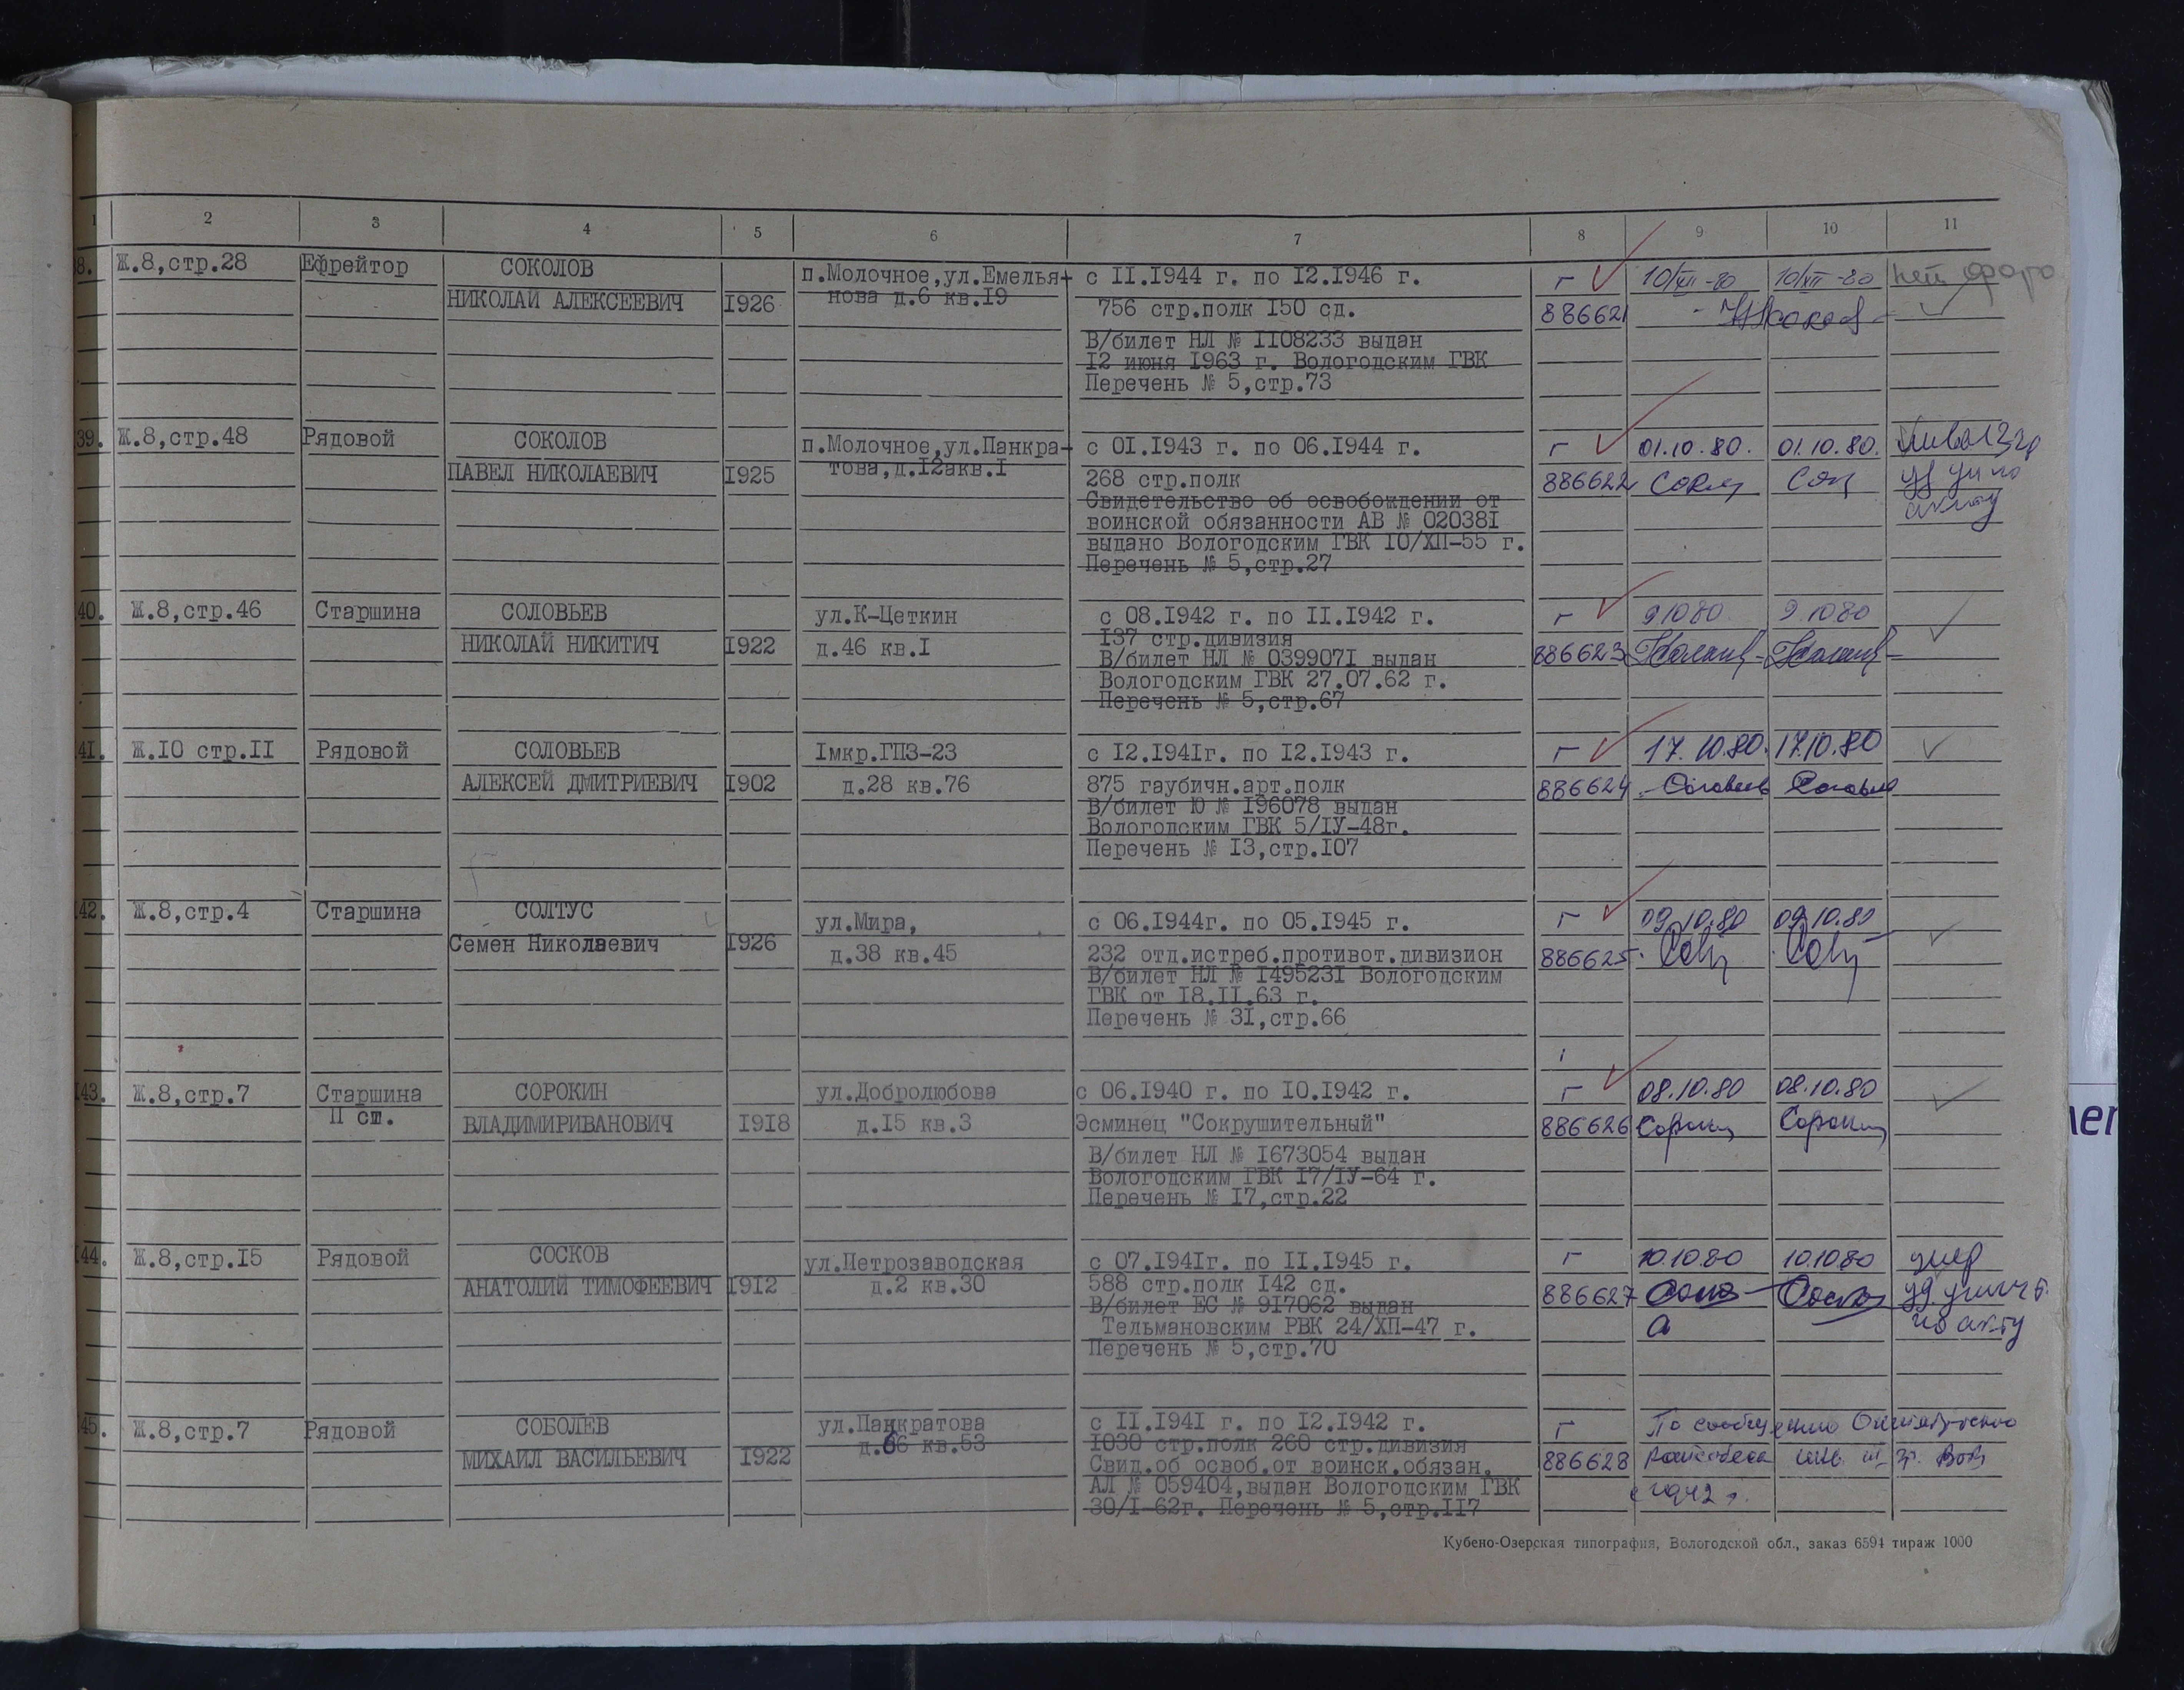 1 2 3 4 5 6 7 8 9 10 11
38. Ж.8,стр.28 Ефрейтор СОКОЛОВ п.Молочное,ул.Емелья- с II.I944 г. по I2.I946 г. г 10/XII-80 10/XII-80 нет фото
НИКОЛАЙ АЛЕКСЕЕВИЧ I926 нова д.6 кв.I9 756 стр.полк I50 сд. 886621
В/билет НЛ № II08233 выдан
I2 июня I963 г. Вологодским ГВК
Перечень № 5,стр.73
39. Ж.8,стр.48 Рядовой СОКОЛОВ п.Молочное,ул.Панкра- с 0I.I943 г. по 06.I944 г. г 01.10.80. 01.10.80.
ПАВЕЛ НИКОЛАЕВИЧ I925 това,д.I2акв.I 268 стр.полк 886622
Свидетельство об освобождении от
воинской обязанности АВ № 02038I акту
выдано Вологодским ГВК I0/ХП-55 г.
Перечень № 5,стр.27
40. Ж.8,стр.46 Старшина СОЛОВЬЕВ ул.К-Цеткин с 08.I942 г. по II.I942 г. г 9 10 80 9.10 80
I37 стр.дивизия
НИКОЛАЙ НИКИТИЧ I922 д.46 кв.I В/билет НЛ № 039907I выдан 886623
Вологодским ГВК 27.07.62 г.
Перечень № 5,стр.67
41. Ж.I0 стр.II Рядовой СОЛОВЬЕВ Iмкр.ГПЗ-23 с I2.I94Iг. по I2.I943 г. г 17.10.80. 17.10.80
АЛЕКСЕЙ ДМИТРИЕВИЧ I902 д.28 кв.76 875 гаубичн.арт.полк 886624
В/билет Ю № I96078 выдан
Вологодским ГВК 5/IУ-48г.
Перечень № I3,стр.I07
42. Ж.8,стр.4 Старшина СОЛТУС ул.Мира, с 06.I944г. по 05.I945 г. г 09.10.80 09.10.80
Семен Николаевич I926 д.38 кв.45 232 отд.истреб.противот.дивизион 886625
В/билет НЛ № I49523I Вологодским
ГВК от I8.II.63 г.
Перечень № 3I,стр.66
43. Ж.8,стр.7 Старшина СОРОКИН ул.Добролюбова с 06.I940 г. по I0.I942 г. г 08.10.80 08.10.80
П ст. ВЛАДИМИРИВАНОВИЧ I9I8 д.I5 кв.3 Эсминец "Сокрушительный" 886626 Сорокин Сорокин
В/билет НЛ № I673054 выдан
Вологодским ГВК I7/IУ-64 г.
Перечень № I7,стр.22
44. Ж.8,стр.I5 Рядовой СОСКОВ ул.Петрозаводская с 07.I94Iг. по II.I945 г. г 10.10.80 10.10.80 умер
АНАТОЛИЙ ТИМОФЕЕВИЧ I9I2 д.2 кв.30 588 стр.полк I42 сд. 886627 уд. уничт.
В/билет ЕС № 9I7062 выдан
Тельмановским РВК 24/ХП-47 г. по акту
Перечень № 5,стр.70
45. Ж.8,стр.7 Рядовой СОБОЛЕВ ул.Панкратова с II.I94I г. по I2.I942 г. г По сообщению Октябрьского
д.66 кв.53 I030 стр.полк 260 стр.дивизия
МИХАИЛ ВАСИЛЬЕВИЧ I922 Свид.об освоб.от воинск.обязан. 886628 райсобеса инв. III гр. ВОВ
АЛ № 059404,выдан Вологодским ГВК с 1942 г.
30/I-62г. Перечень № 5,стр.II7
Кубено-Озерская типография, Вологодской обл., заказ 6594 тираж 1000